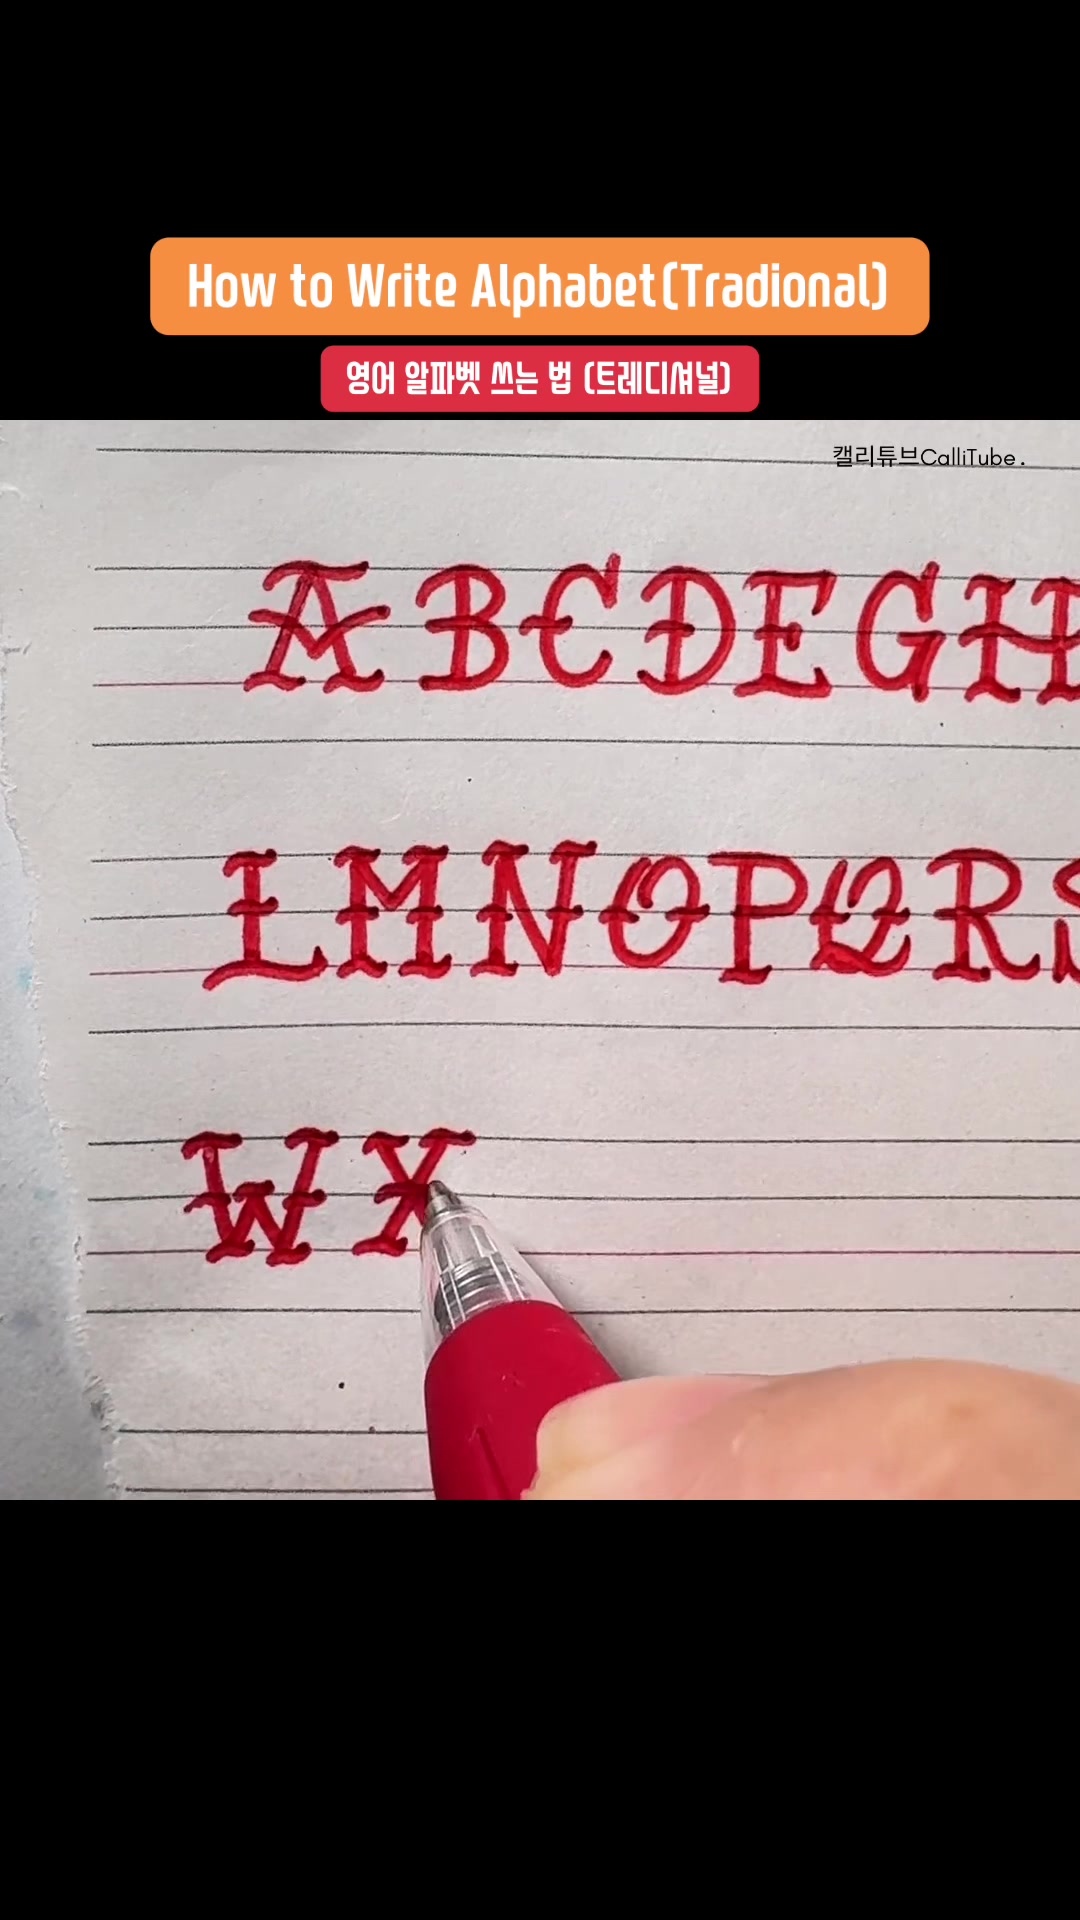 How to Write Alphabet(Tradional)
영어 알파벳 쓰는 법 (트레디셔널)
캘리튜브CalliTube.
A B C D E G H
L M N O P Q R S
W X